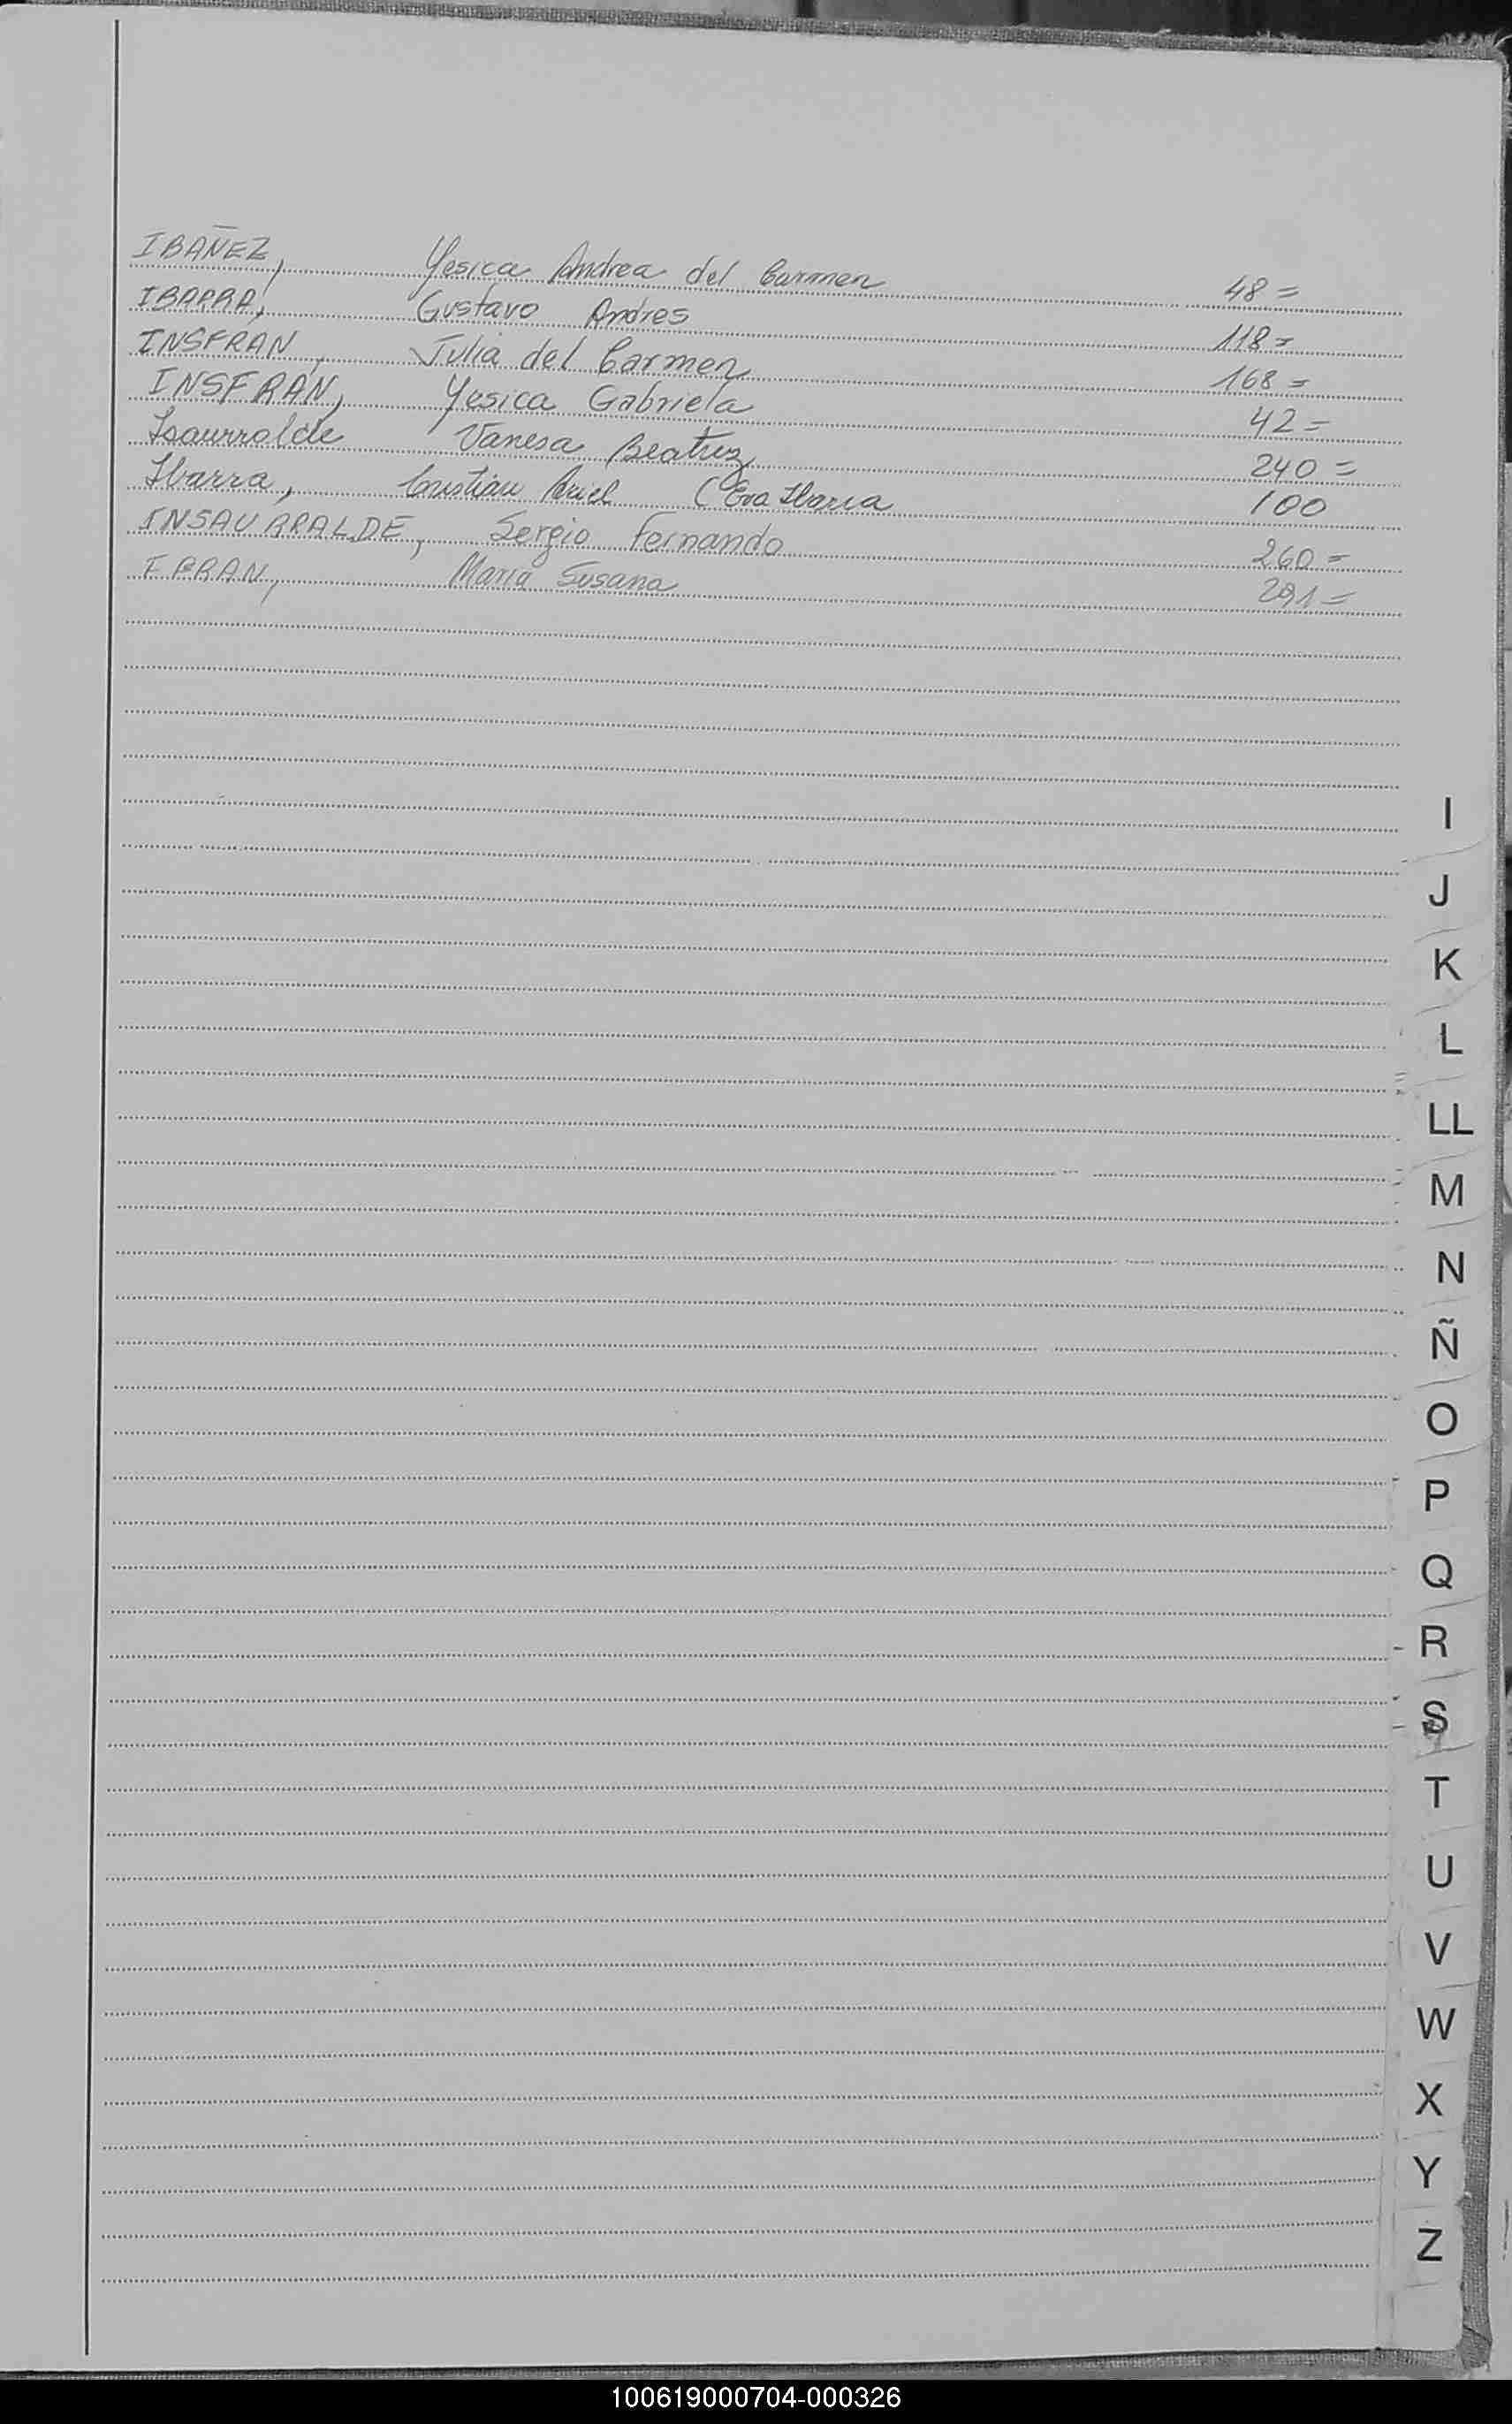 IBAÑEZ, Yesica Andrea del Carmen 48=
IBARRA, Gustavo Andres 118=
INSFRAN, Julia del Carmen 168=
INSFRÁN, Yesica Gabriela 42=
Isaurralde Vanesa Beatriz 240=
Ibarra, Cristian Ariel (Eva Ibarra 100
INSAURRALDE, Sergio Fernando 260=
María Susana 291=
I
J
K
L
LL
M
N
Ñ
O
P
Q
R
S
T
U
V
W
X
Y
Z
100619000704-000326